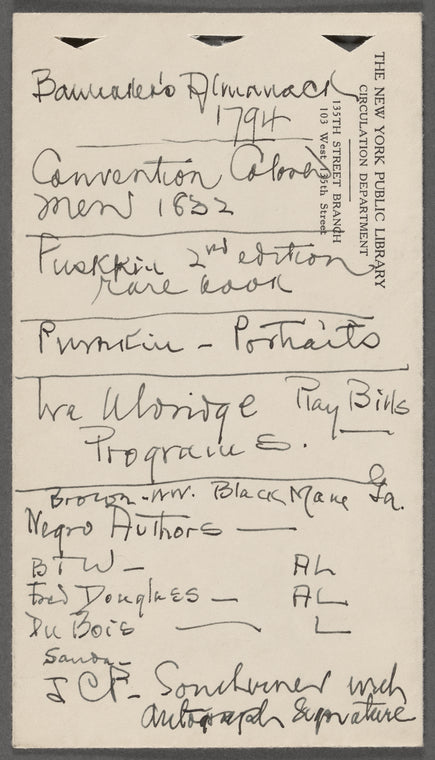 THE NEW YORK PUBLIC LIBRARY
CIRCULATION DEPARTMENT
135TH STREET BRANCH
103 West 135th Street
Banneker's Almanack
1794
Convention Colored
Men 1832
Puskkin 2nd edition
rare book
Pushkin - Portraits
Ira Aldridge Play Bills
Programs.
Brown - W.W. Black Man Ga.
Negro Authors —
BTW - AL
Fred Douglass - AL
Du Bois — L
J C P - Souvenir with
Autograph Signature